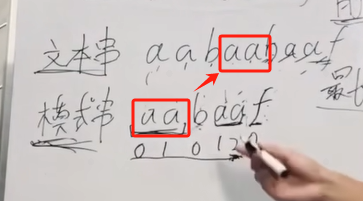 文本串 aabaabaaf
模式串 aabaaf
0 1 0 1 2 0